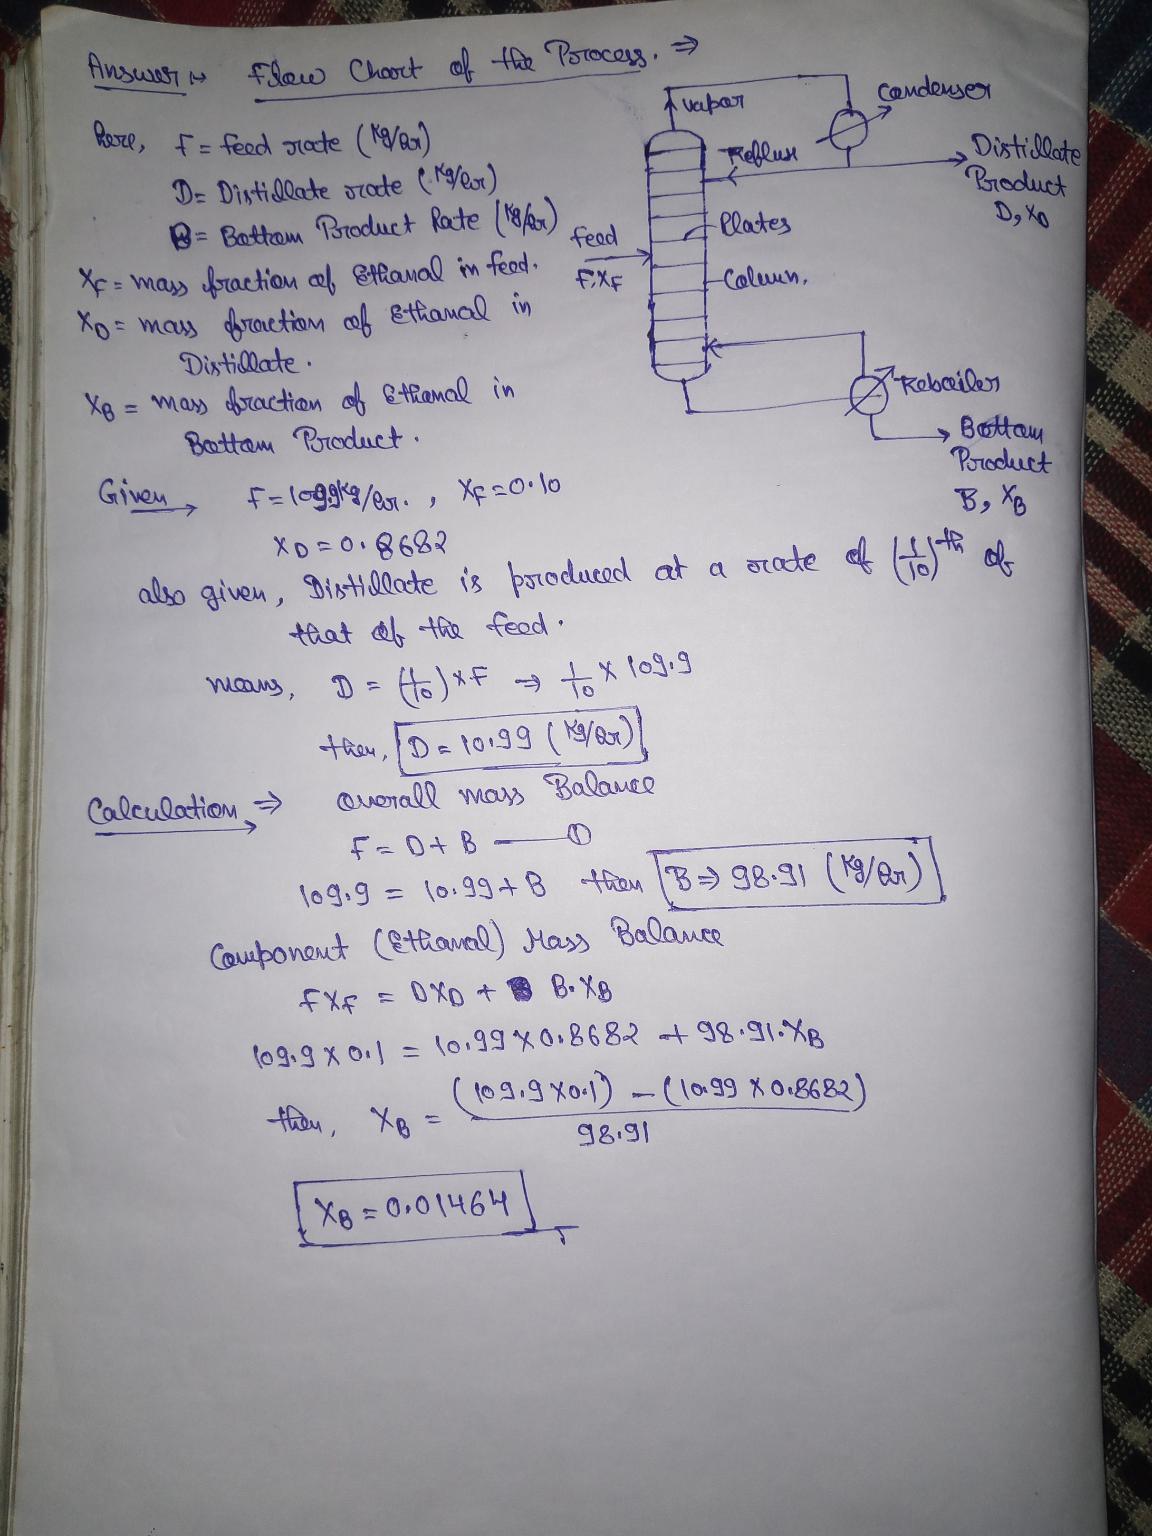 Answer :- Flow Chart of the Process. ⇒
vapor
Condenser
Here, F = feed rate (Kg/hr)
Reflux
Distillate
Product
D, XD
D = Distillate rate (Kg/hr)
B = Bottom Product Rate (Kg/hr)
feed
F, XF
Plates
Column.
XF = mass fraction of Ethanol in feed.
XD = mass fraction of Ethanol in
Distillate.
Reboiler
XB = mass fraction of Ethanol in
Bottom Product.
Bottom
Product
B, XB
Given → F = 109.9 Kg/hr. , XF = 0.10
XD = 0.8682
also given, Distillate is produced at a rate of (1/10)th of
that of the feed.
means, D = (1/10) × F ⇒ 1/10 × 109.9
then, D = 10.99 (Kg/hr)
Calculation ⇒ Overall mass Balance
F = D + B — ①
109.9 = 10.99 + B then B ⇒ 98.91 (Kg/hr)
Component (Ethanol) Mass Balance
FXF = DXD + B·XB
109.9 × 0.1 = 10.99 × 0.8682 + 98.91·XB
then, XB = (109.9 × 0.1) - (10.99 × 0.8682)
98.91
XB = 0.01464